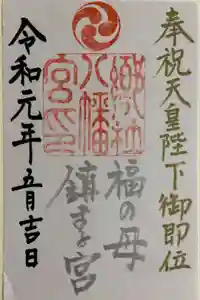 奉祝天皇陛下御即位
社
八幡
宮印
福の母
鎮まる宮
令和元年五月吉日